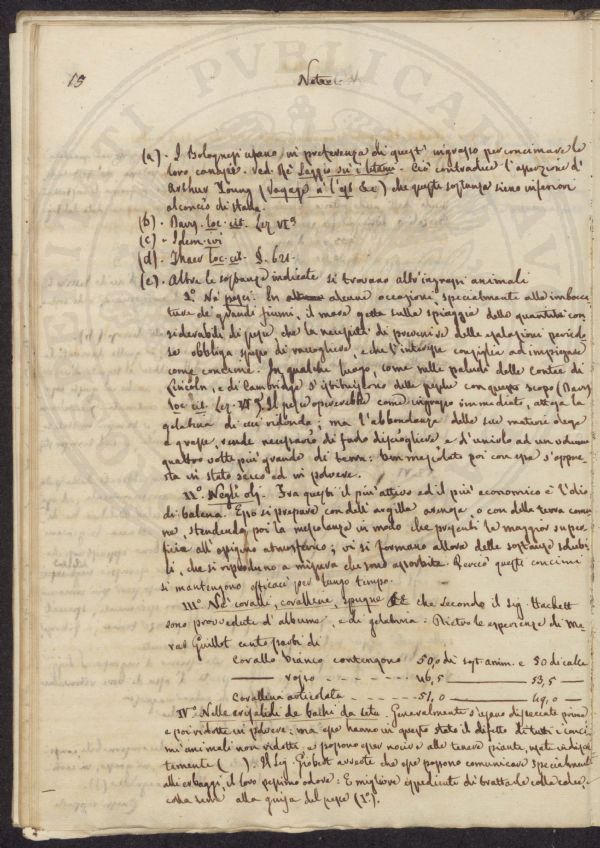 15
Note
(a). I Bolognesi usano in preferenza di quest' ingrasso per concimare le
loro canape. Ved. Re Saggio su i letami. Ciò contradice l'asserzione d'
Arthur Young (Voyage a l' &c) che queste sostanze sieno inferiori
al concio di stalla.
(b). Davy. loc. cit. Lez. VIª
(c). Idem. ivi
(d). Thaer loc. cit. §. 621.
(e). Altre le sostanze indicate si trovano altr'ingrassi animali
I.º Ne' pesci. In alcune occasioni, specialmente alle imbocca-
ture de' grandi fiumi, il mare getta sulla spiaggia delle quantità con-
siderabili di pesce, che la necessità di prevenire delle esalazioni perico-
se obbliga spesso di raccogliere, e che l'interesse consiglia ad impiegare
come concime. In qualche luogo, come nelle paludi delle contee di
Lincoln, e di Cambridge s'istituiscono delle pesche con questo scopo (Davy
loc. cit. Lez. VIª). Il pesce opererebbe come ingrasso immediato, attesa la
gelatina di cui ridonda; ma l'abbondanza delle sue materie
e grasse, rende necessario di farlo disciogliere e d'unirlo ad un volume
quattro volte più grande di terra: ben mescolato poi con essa s'appre-
sta in stato secco ed in polvere.
II.º Negli olj. Fra questi il più attivo ed il più economico è l'olio
di balena. Esso si prepara con dell' argilla arenosa, o con della terra comu-
ne, stendendo poi la mescolanza in modo che presenti la maggior super-
ficie all' ossigeno atmosferico; vi si formano allora delle sostanze solubi-
li, che si riproducono a misura che sono assorbite. Perciò questi concimi
si mantengono efficaci per lungo tempo.
III.º Ne' coralli, coralline, spugne &c che secondo il Sig. Hackett
sono provvedute d'albume, e di gelatina: Dietro le esperienze di Me-
rat Guillot cento parti di
Corallo bianco contengono 50,0 di sost. anim. e 50 di calce
—— rosso - - - - - - 46,5 —— 53,5 —
Corallina articolata - - - - - 51,0 —— 49,0 —
IV.º Nelle crisalidi de bachi da seta. Generalmente s'usano disseccate prima
e poi ridotte in polvere; ma esse hanno in questo stato il difetto di tutti i conci-
mi animali non ridotti: e possono esser nocive alle tenere piante, usate
temente ( ). Il Sig. Giobert avverte che esse possono comunicare specialmente
alli erbaggi il loro pessimo odore: È migliore espediente di trattarle colle calce,
colla terra alla guisa del pesce (1.º).